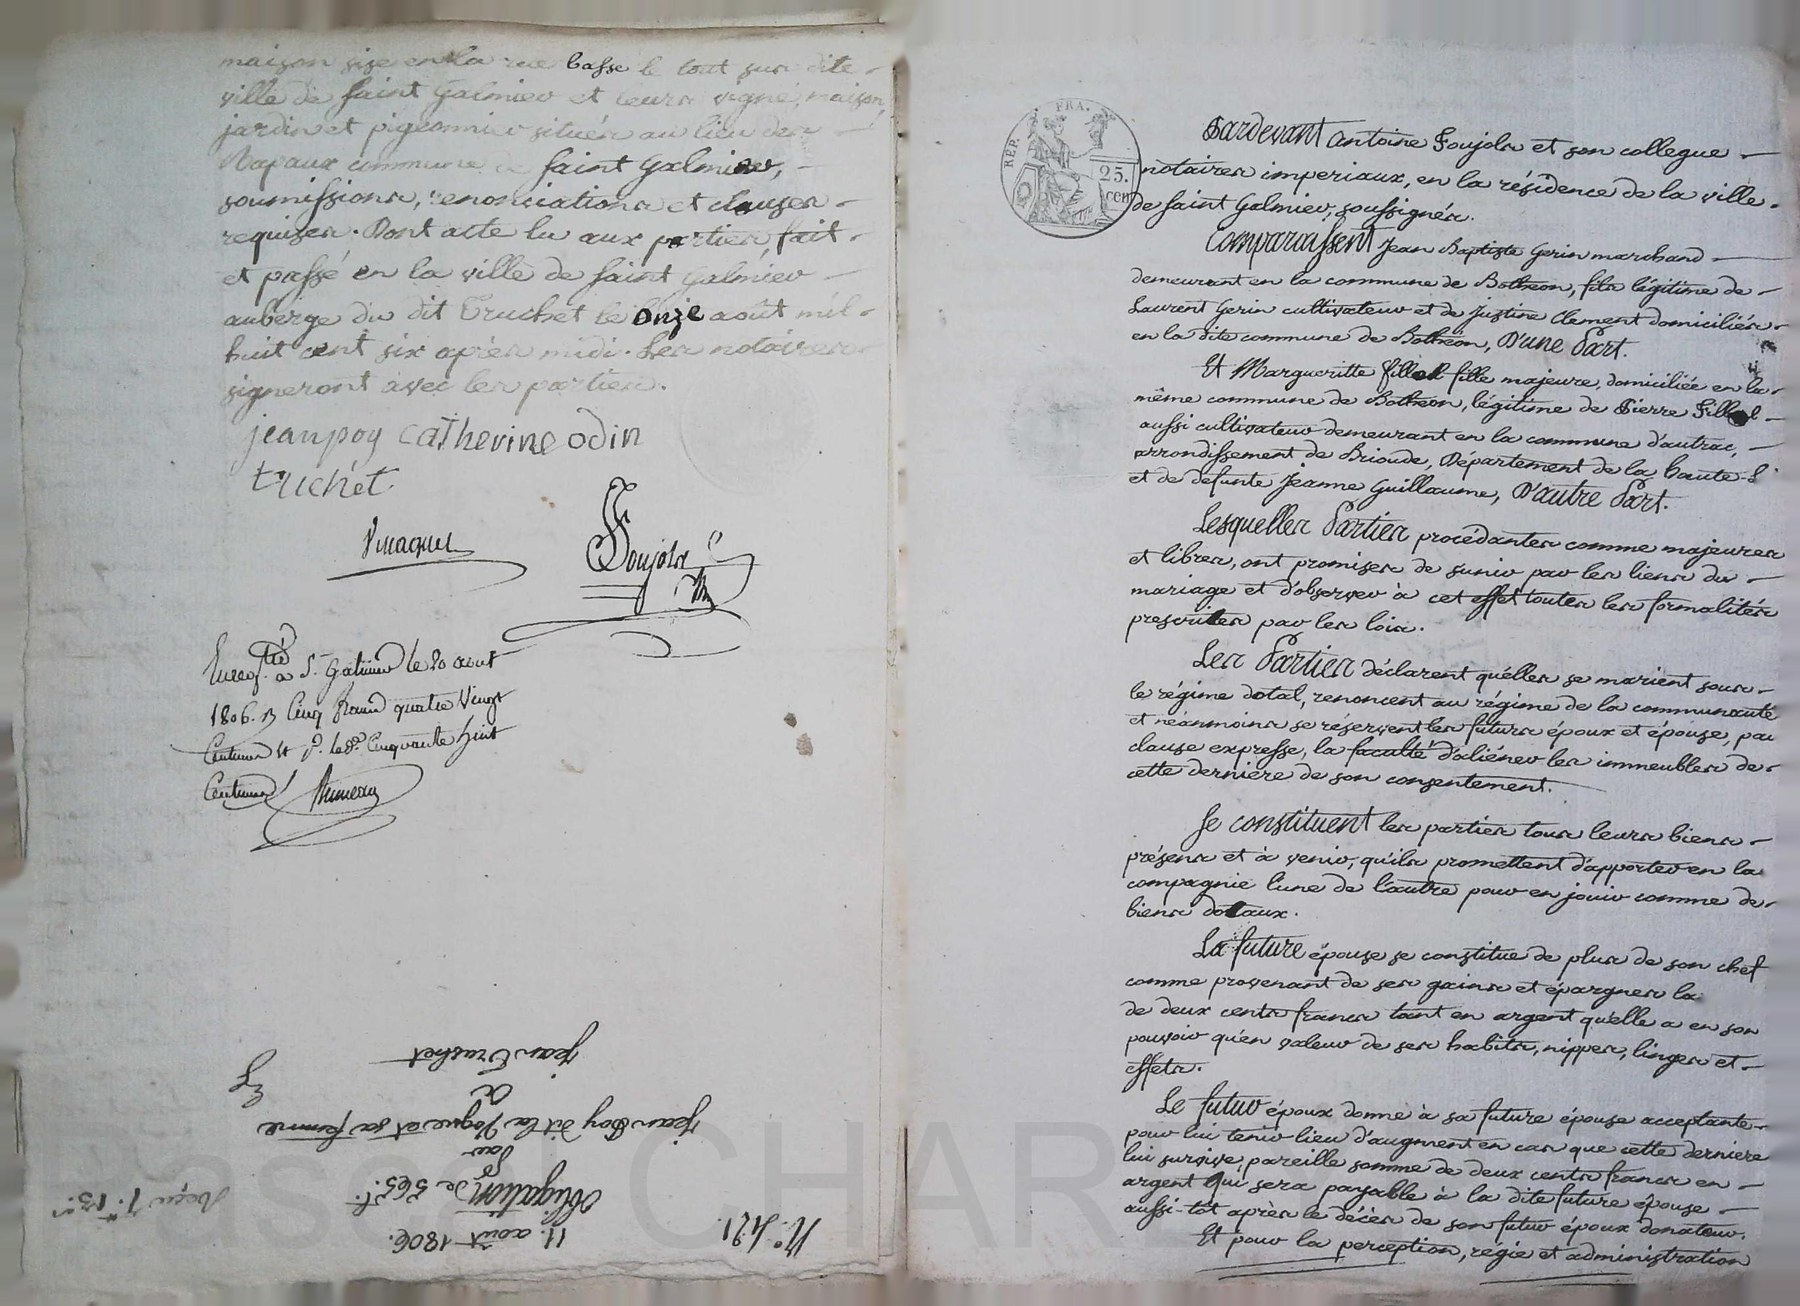 maison sise en la rue basse le tout sur dite
ville de saint Galmier et leurs vigne, maison
jardin et pigeonnier situés au lieu des
Rapaux commune de saint Galmier,
soumissions, renonciations et clauses
requises. Dont acte lu aux parties fait
et passé en la ville de saint Galmier
auberge du dit Truchet le onze août mil
huit cent six après midi. Les notaires
signeront avec les parties.
jean poy catherine odin
truchet
Foujols
Enreg.tré à St. Galmier le 20 août
1806. R cinq francs quatre vingt
centimes et p. le d.e cinquante huit
centimes
N.° 421.
11. août 1806.
Obligation de 565.f
par
jean Poy dit la Vogue et sa femme
à
jean Truchet
REP. FRA.
25.
cen
Pardevant Antoine Foujols et son collegue
notaires imperiaux, en la résidence de la ville
de saint Galmier, soussignés.
Comparaissent Jean Baptiste Gerin marchand
demeurant en la commune de Bothéon, fils légitime de
Laurent Gerin cultivateur et de Justine Clement domiciliés
en la dite commune de Bothéon, D'une Part.
Et Margueritte fillol fille majeure, domiciliée en la
même commune de Bothéon, légitime de Pierre Fillol
aussi cultivateur demeurant en la commune d'autrac,
arrondissement de Brioude, Département de la haute-L
et de defunte Jeanne Guillaume, D'autre Part.
Lesquelles Parties procédantes comme majeures
et libres, ont promises de s'unir par les liens du
mariage et d'observer à cet effet toutes les formalités
prescrites par les lois.
Les Parties déclarent qu'elles se marient sous
le régime dotal, renoncent au régime de la communauté
et néanmoins se réservent les futurs époux et épouse, par
clause expresse, la faculté d'aliéner les immeubles de
cette dernière de son consentement.
Se constituent les parties tous leurs biens
présens et à venir, qu'ils promettent d'apporter en la
compagnie l'une de l'autre pour en jouir comme de
biens dotaux.
La future épouse se constitue de plus de son chef
comme provenant de ses gains et épargnes la
de deux cents francs tant en argent qu'elle a en son
pouvoir qu'en valeur de ses habits, nippes, linges et
effets.
Le futur époux donne à sa future épouse acceptante
pour lui tenir lieu d'augment en cas que cette dernière
lui survive, pareille somme de deux cents francs en
argent qui sera payable à la dite future épouse
aussi-tôt après le décès de son futur époux donateur.
Et pour la perception, régie et administration